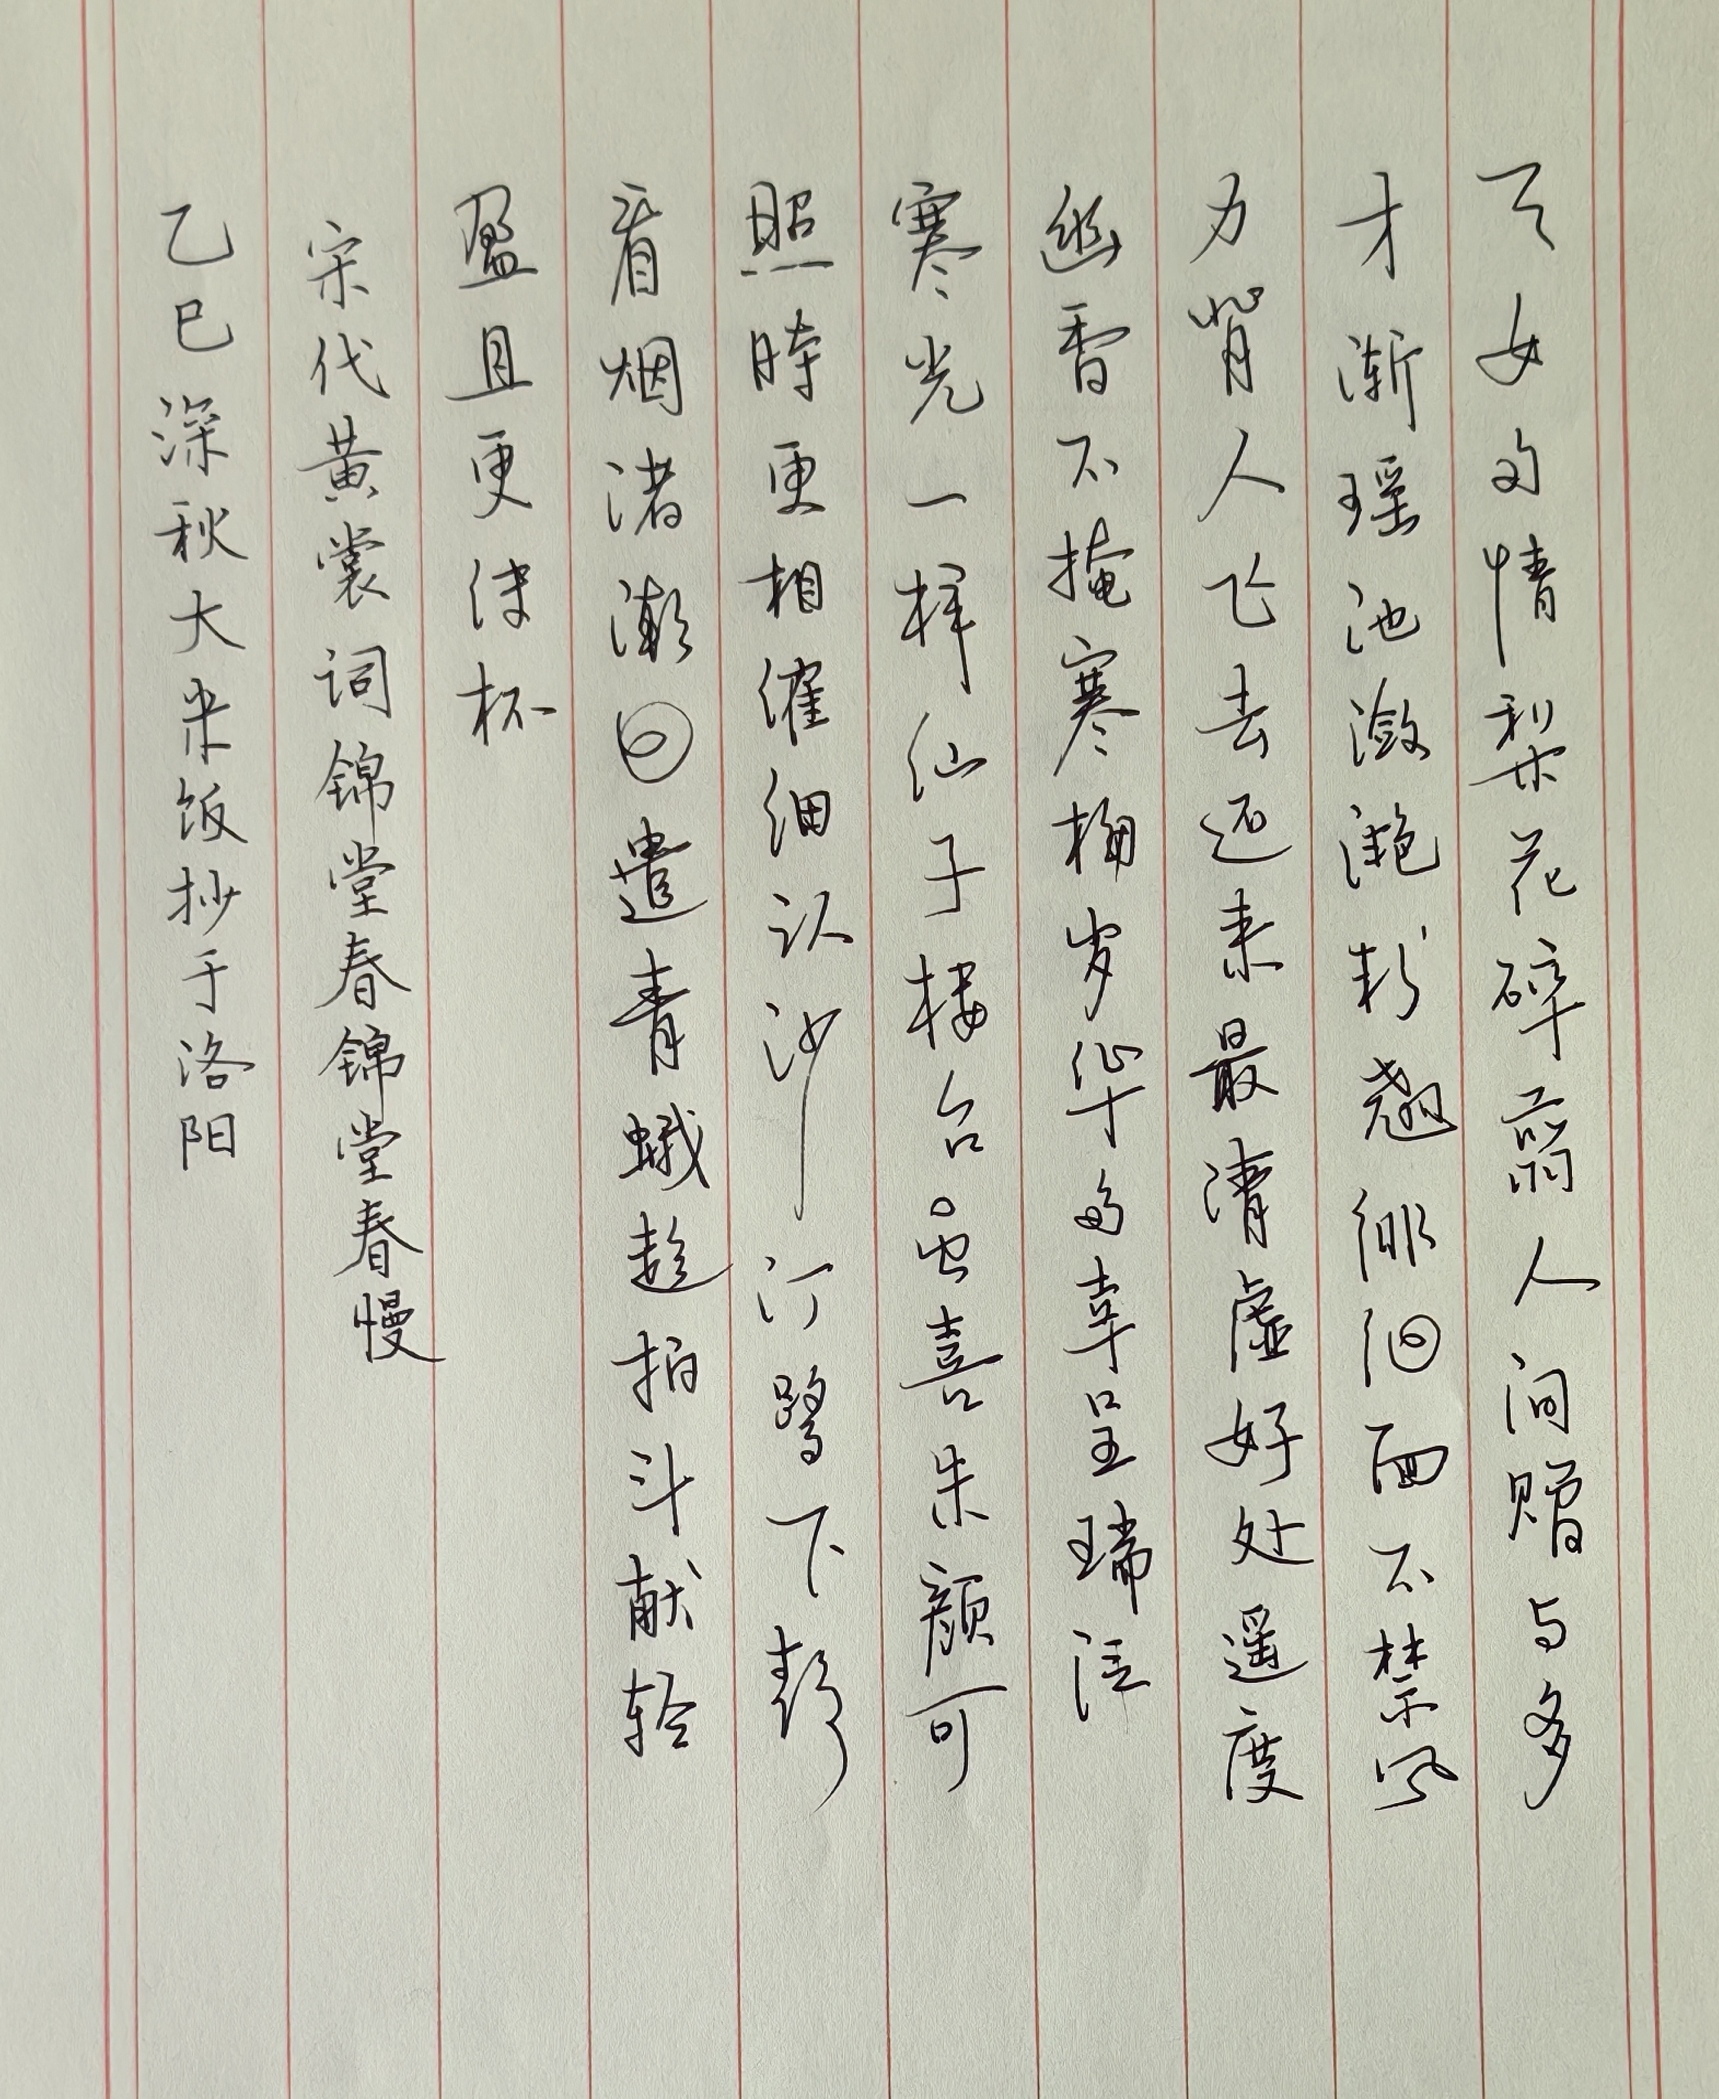 天女多情梨花碎剪人间赠与多
才渐瑶池潋滟粉翘徘徊面不禁风
力背人飞去还来最清虚好处遥度
幽香不掩寒梅岁华多幸呈瑞泛
寒光一样仙子楼台虽喜朱颜可
照时更相催细认沙汀鹭下静
看烟渚潮回遣青蛾趁拍斗献轻
盈且更传杯
宋代黄裳词锦堂春锦堂春慢
乙巳深秋大米饭抄于洛阳